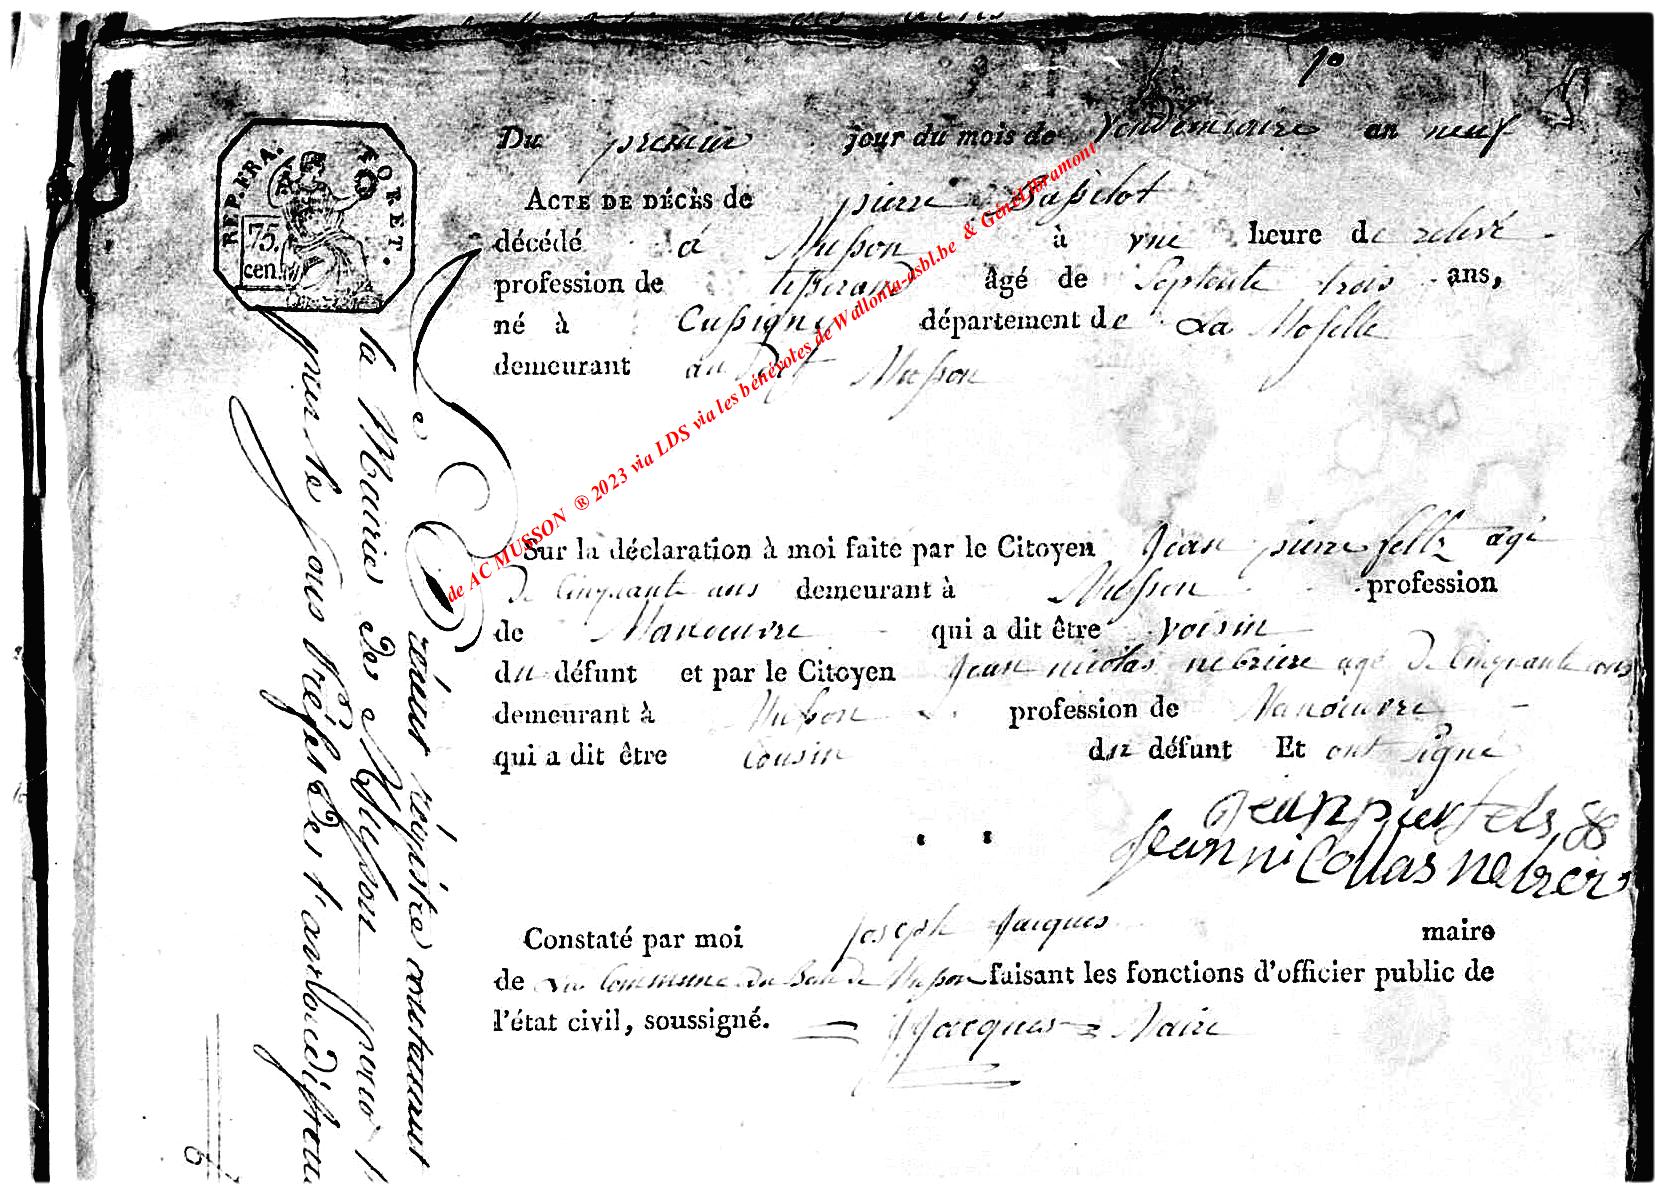 10
REP.FRA.
TORET.
75.
cen.
Du premier jour du mois de Vendemiaire an neuf
ACTE DE DÉCÈS de pierre
décédé à Musson à une heure de relevé
profession de tisserand âgé de Septente trois ans,
né à Cussigny département de La Moselle
demeurant au dit Musson
Sur la déclaration à moi faite par le Citoyen Jean pierre feltz agé
de Cinquante ans demeurant à Musson profession
de Manoeuvre qui a dit être voisin
du défunt et par le Citoyen Jean nicolas nebriere agé de Cinquante ans
demeurant à Musson profession de Manoeuvre
qui a dit être Cousin du défunt Et ont signé
jean pier fels
Jean ni Collas nebrer
Constaté par moi Joseph Jacques maire
de La Commune du Ban de Musson faisant les fonctions d'officier public de
l'état civil, soussigné. JJacques Maire
de AC MUSSON ® 2023 via LDS via les bénévotes de Wallonia-asbl.be & GénéLibramont
régistre contenant
la Mairie de Musson pour l
par le sous préfet de l'arrondissem
6